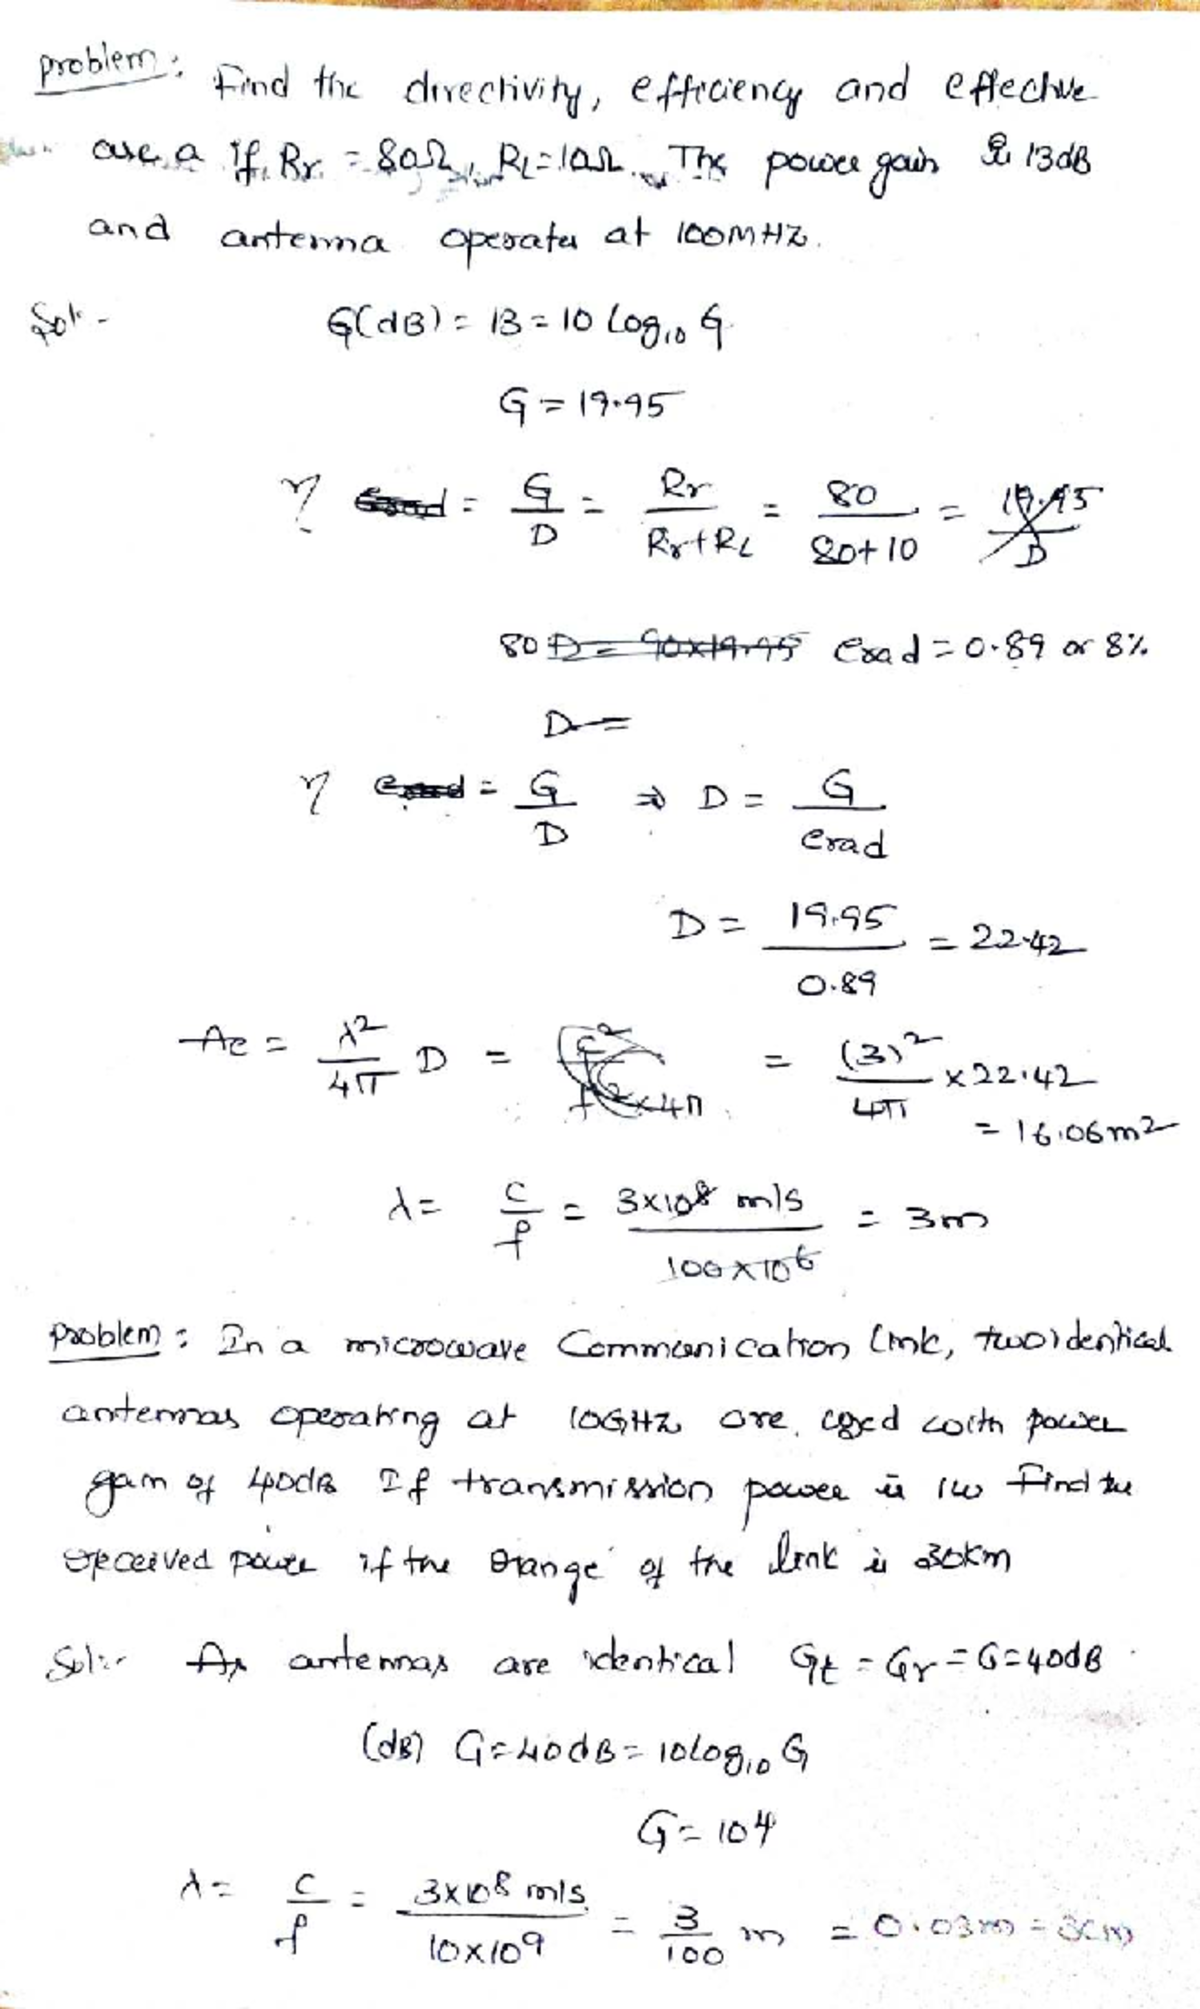 problem: Find the directivity, efficiency and effective
area if Rr = 80Ω, RL=10Ω. The power gain is 13dB
and antenna operates at 100MHZ.
Sol:- G(dB) = 13 = 10 Log10 G
G = 19.95
η erad = G/D = Rr/(Rr+RL) = 80/(80+10) = 19.95/D
80 D = 90x19.95 erad = 0.89 or 8%
D =
η erad = G/D ⇒ D = G/erad
D = 19.95/0.89 = 22.42
Ae = λ²/4π D = c²/(f²x4π) = (3)²/4π x 22.42
= 16.06m2
λ = c/f = 3x10⁸ m/s / 100x10⁶ = 3m
Problem: In a microwave Communication link, two identical
antennas operating at 10GHZ are used with power
gain of 40dB If transmission power is 1w Find the
received power if the range of the link is 30km
Sol:- As antennas are identical Gt = Gr = G = 40dB
(dB) G = 40dB = 10log10 G
G = 10⁴
λ = c/f = 3x10⁸ m/s / 10x10⁹ = 3/100 m = 0.03m = 3cm